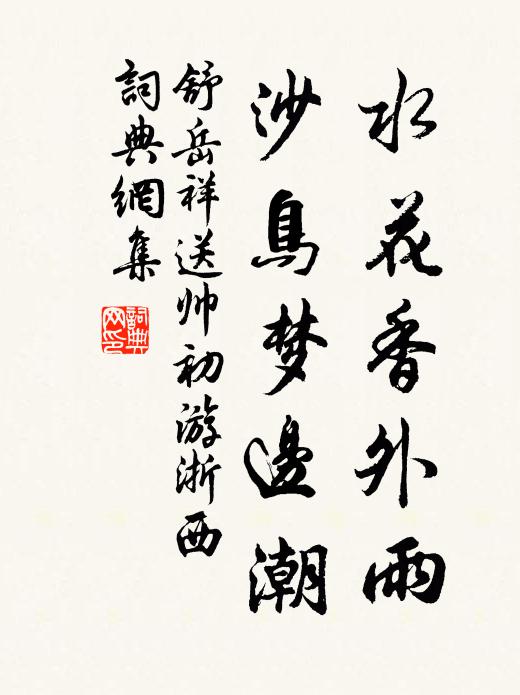 水花香外雨
沙鳥梦邊潮
舒岳祥送帅初游浙西
詞典網集
詞典网印